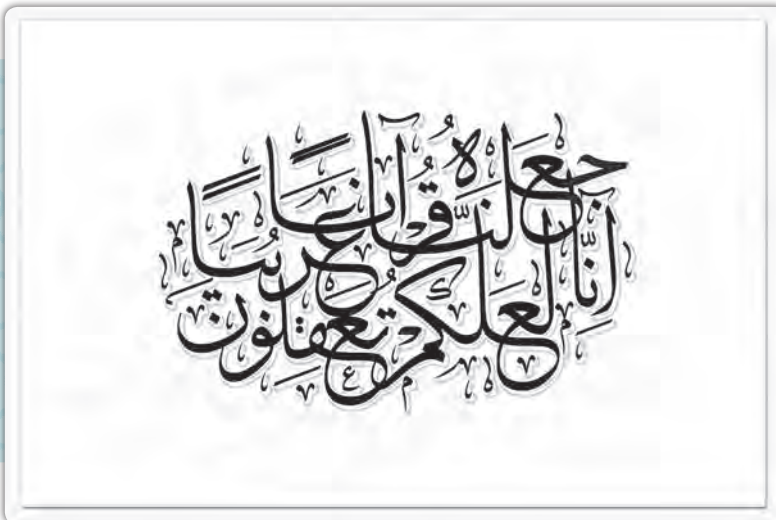 إِنَّا جَعَلنَٰهُ قُرآنًا عَرَبِيًّا
لَعَلَّكُم تَعقِلُونَ